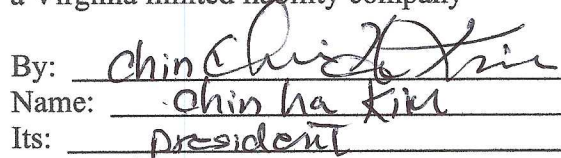 a Virginia limited liability company
By: Chin Chin Ha Kim
Name: Chin ha Kim
Its: president